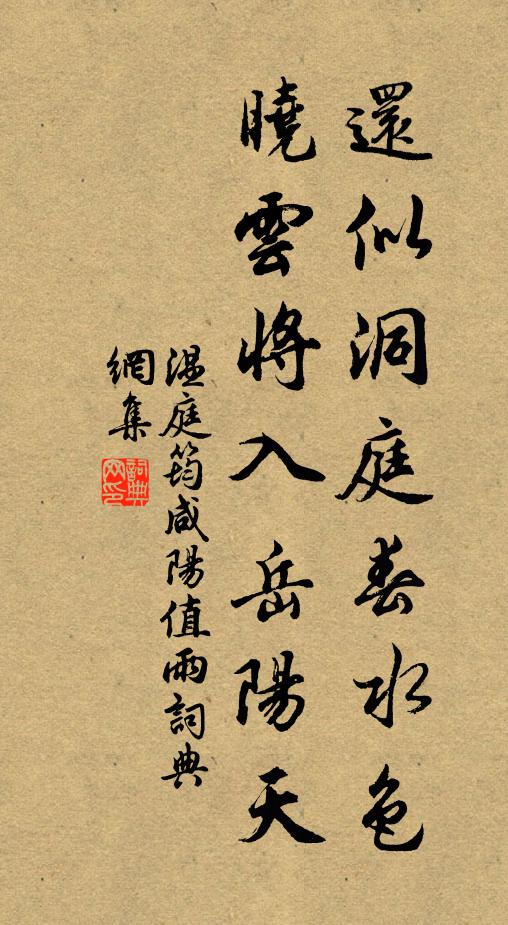 還似洞庭春水色
曉雲將入岳陽天
温庭筠咸陽值雨詞典
網集
詞典
网印